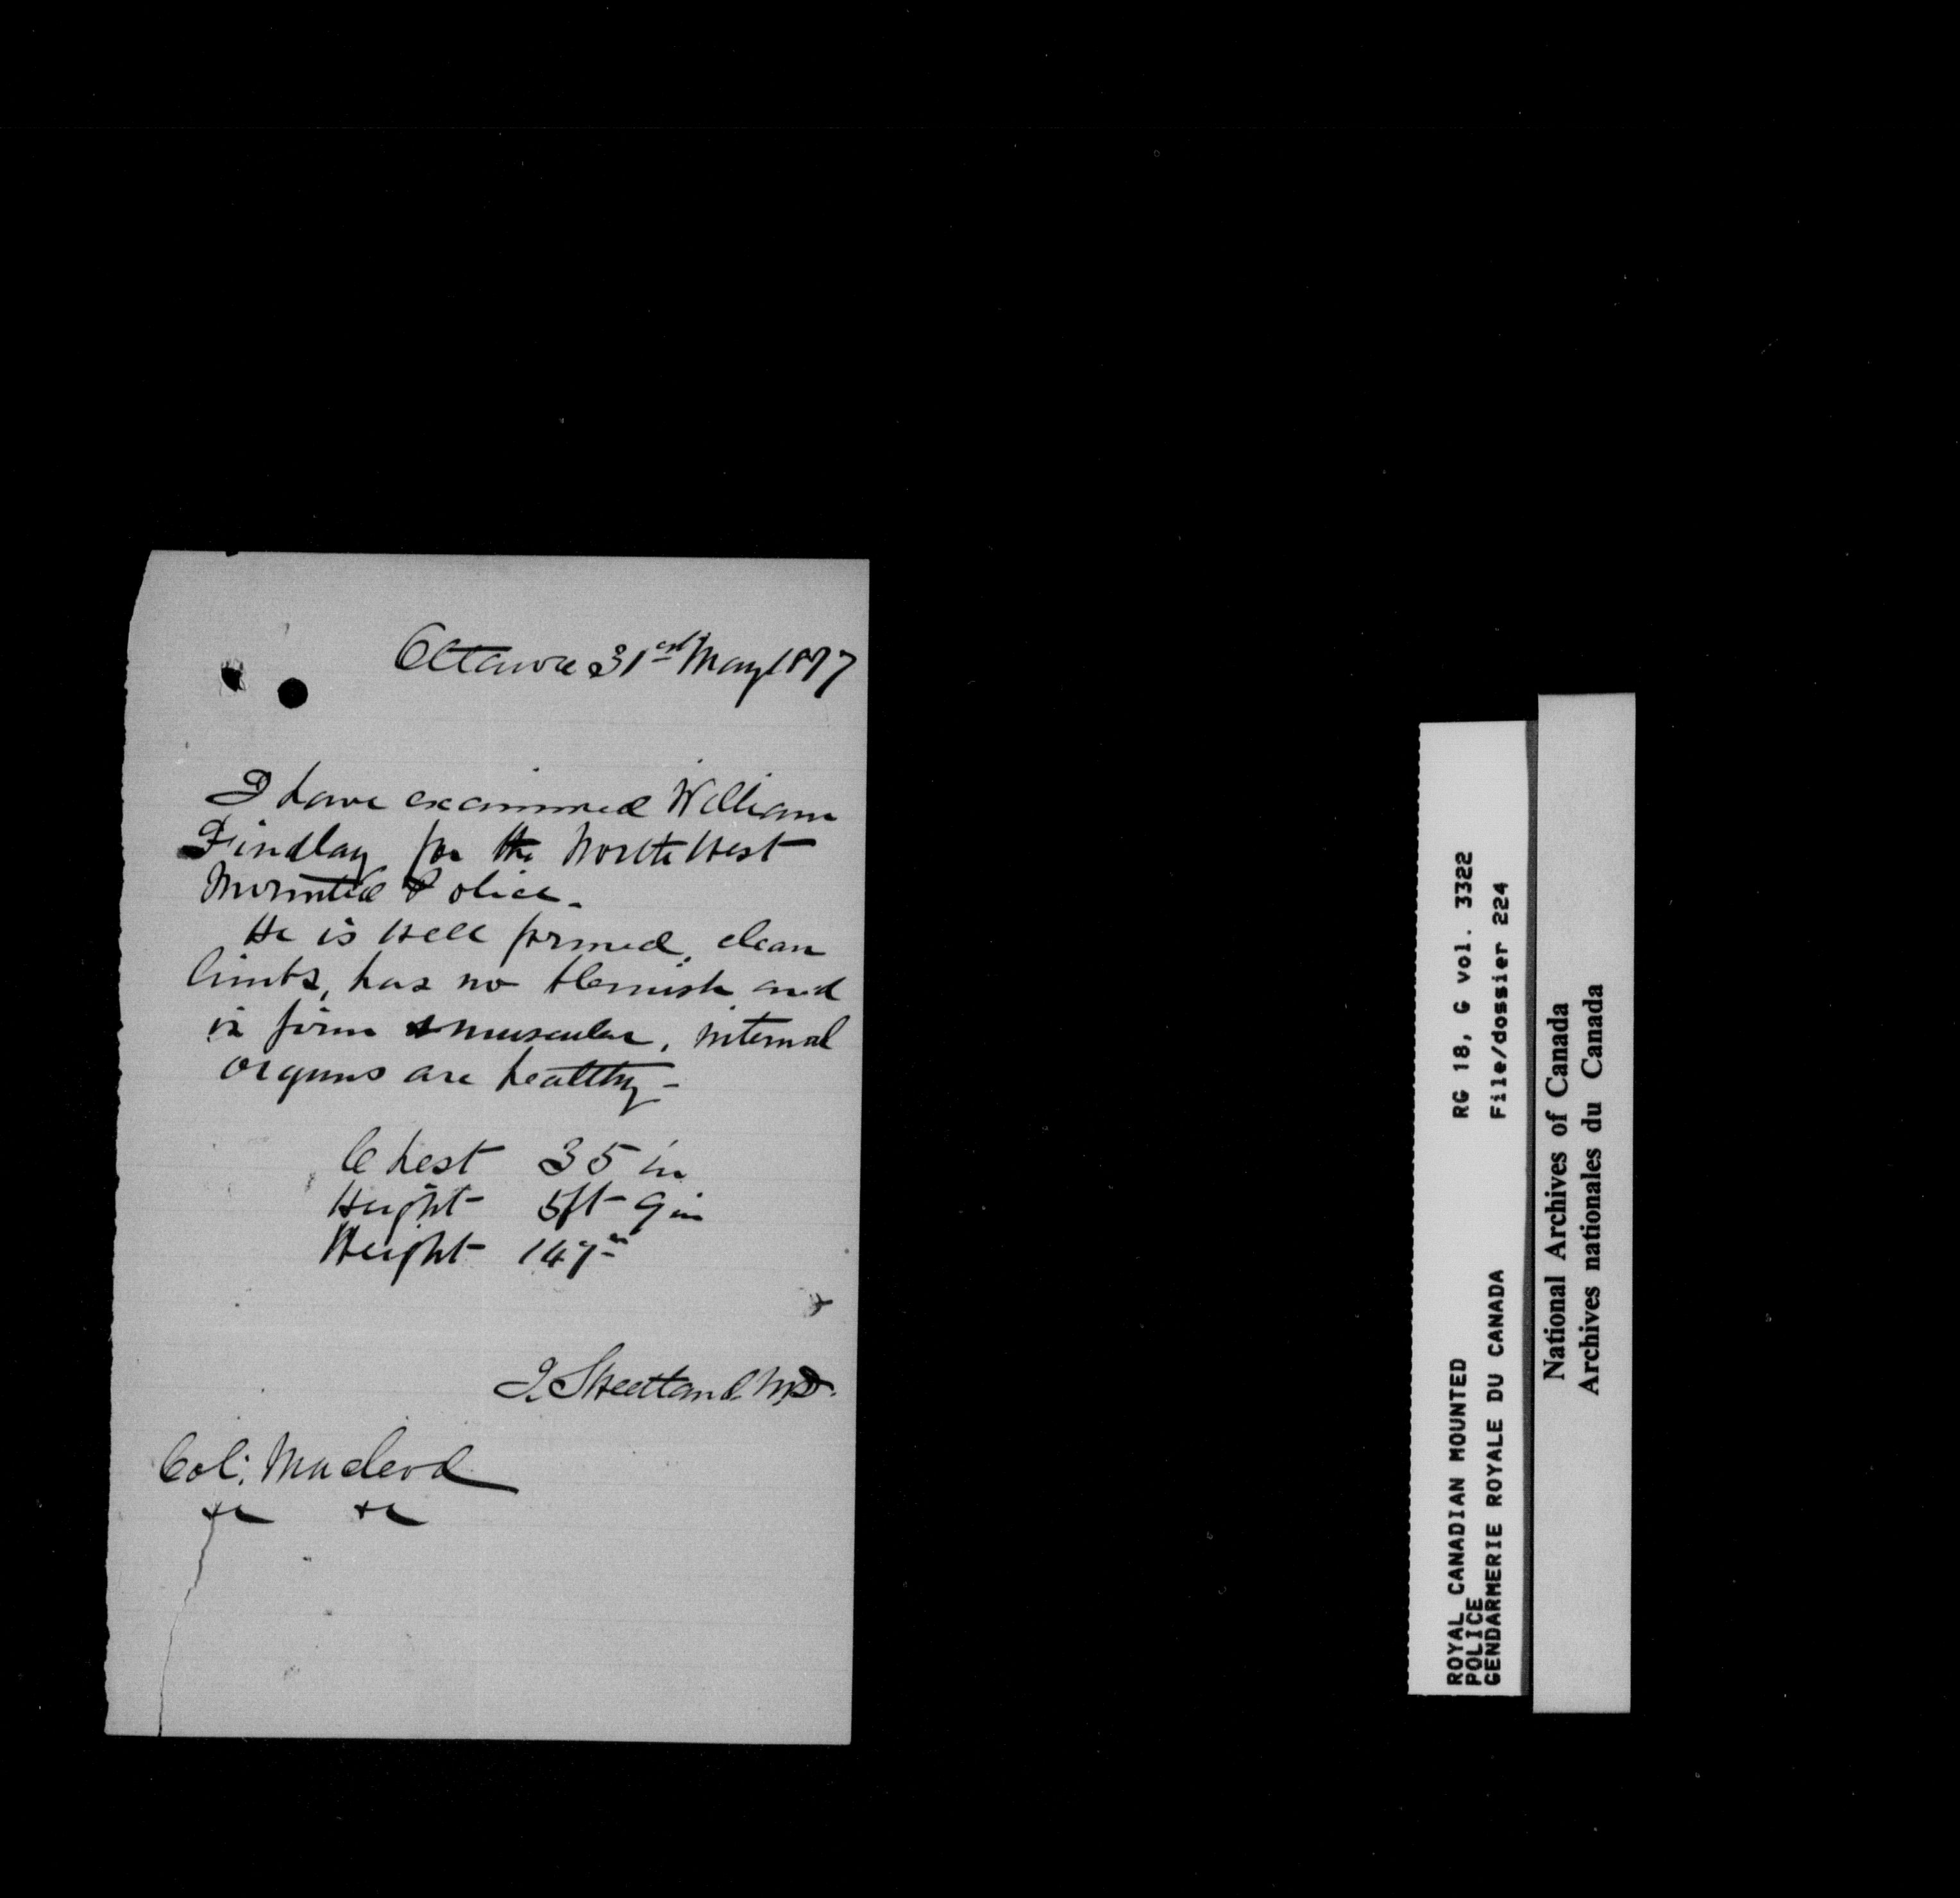 Ottawa 31st May 1877
I have examined William
Findlay for the North West
Mounted Police.
He is well formed, clean
limbs, has no blemish and
is firm & muscular, internal
organs are healthy -
Chest 35 in
Height 5ft 9 in
Weight 147
Sweetland M.D.
Col: Macleod
&c &c
RG 18, G vol. 3322
File/dossier 224
ROYAL CANADIAN MOUNTED
POLICE
GENDARMERIE ROYALE DU CANADA
National Archives of Canada
Archives nationales du Canada